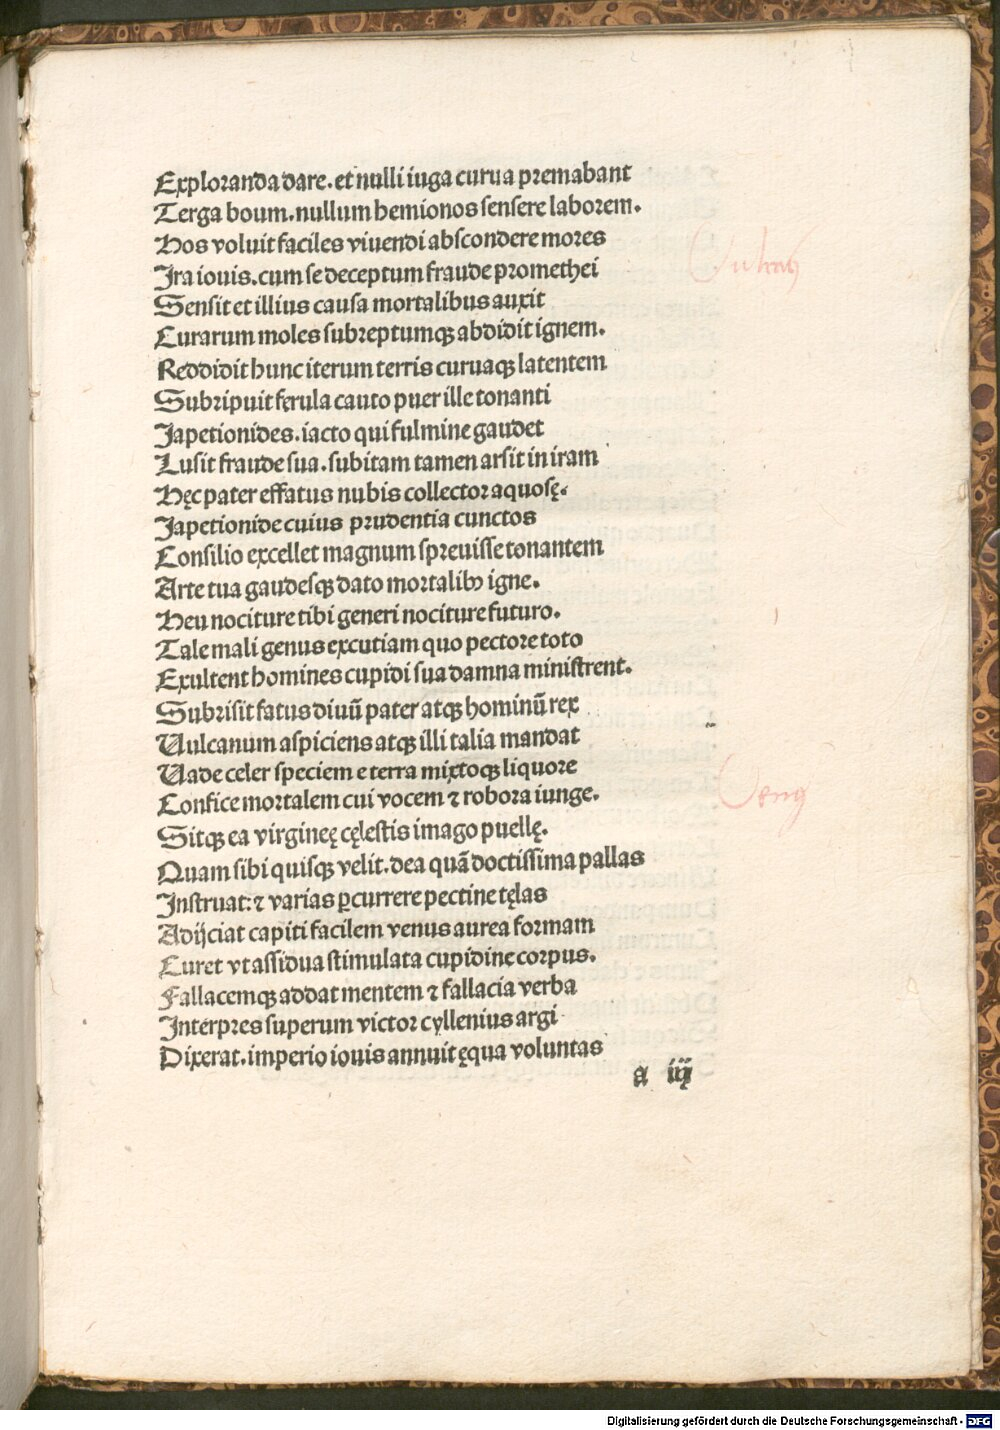 Exploranda dare. et nulli iuga curua premabant
Terga boum. nullum hemionos sensere laborem.
Hos voluit faciles viuendi abscondere mores
Ira iouis. cum se deceptum fraude promethei
Sensit et illius causa mortalibus auxit
Curarum moles subreptumqꝫ abdidit ignem.
Reddidit hunc iterum terris curuaqꝫ latentem
Subripuit ferula cauto puer ille tonanti
Japetionides. iacto qui fulmine gaudet
Lusit fraude sua. subitam tamen arsit in iram
Hęc pater effatus nubis collector aquosę.
Japetionide cuius prudentia cunctos
Consilio excellet magnum spreuisse tonantem
Arte tua gaudesqꝫ dato mortalibꝰ igne.
Heu nociture tibi generi nociture futuro.
Tale mali genus excutiam quo pectore toto
Exultent homines cupidi sua damna ministrent.
Subrisit fatus diuū pater atqꝫ hominū rex
Uulcanum aspiciens atqꝫ illi talia mandat
Uade celer speciem e terra mixtoqꝫ liquore
Confice mortalem cui vocem ⁊ robora iunge.
Sitqꝫ ea virgineę cęlestis imago puellę.
Quam sibi quisqꝫ velit. dea quā doctissima pallas
Instruat: ⁊ varias ꝑcurrere pectine tęlas
Adijciat capiti facilem venus aurea formam
Curet vt assidua stimulata cupidine corpus.
Fallacemqꝫ addat mentem ⁊ fallacia verba
Interpres superum victor cyllenius argi
Dixerat. imperio iouis annuit ęqua voluntas
a iij
Digitalisierung gefördert durch die Deutsche Forschungsgemeinschaft - DFG